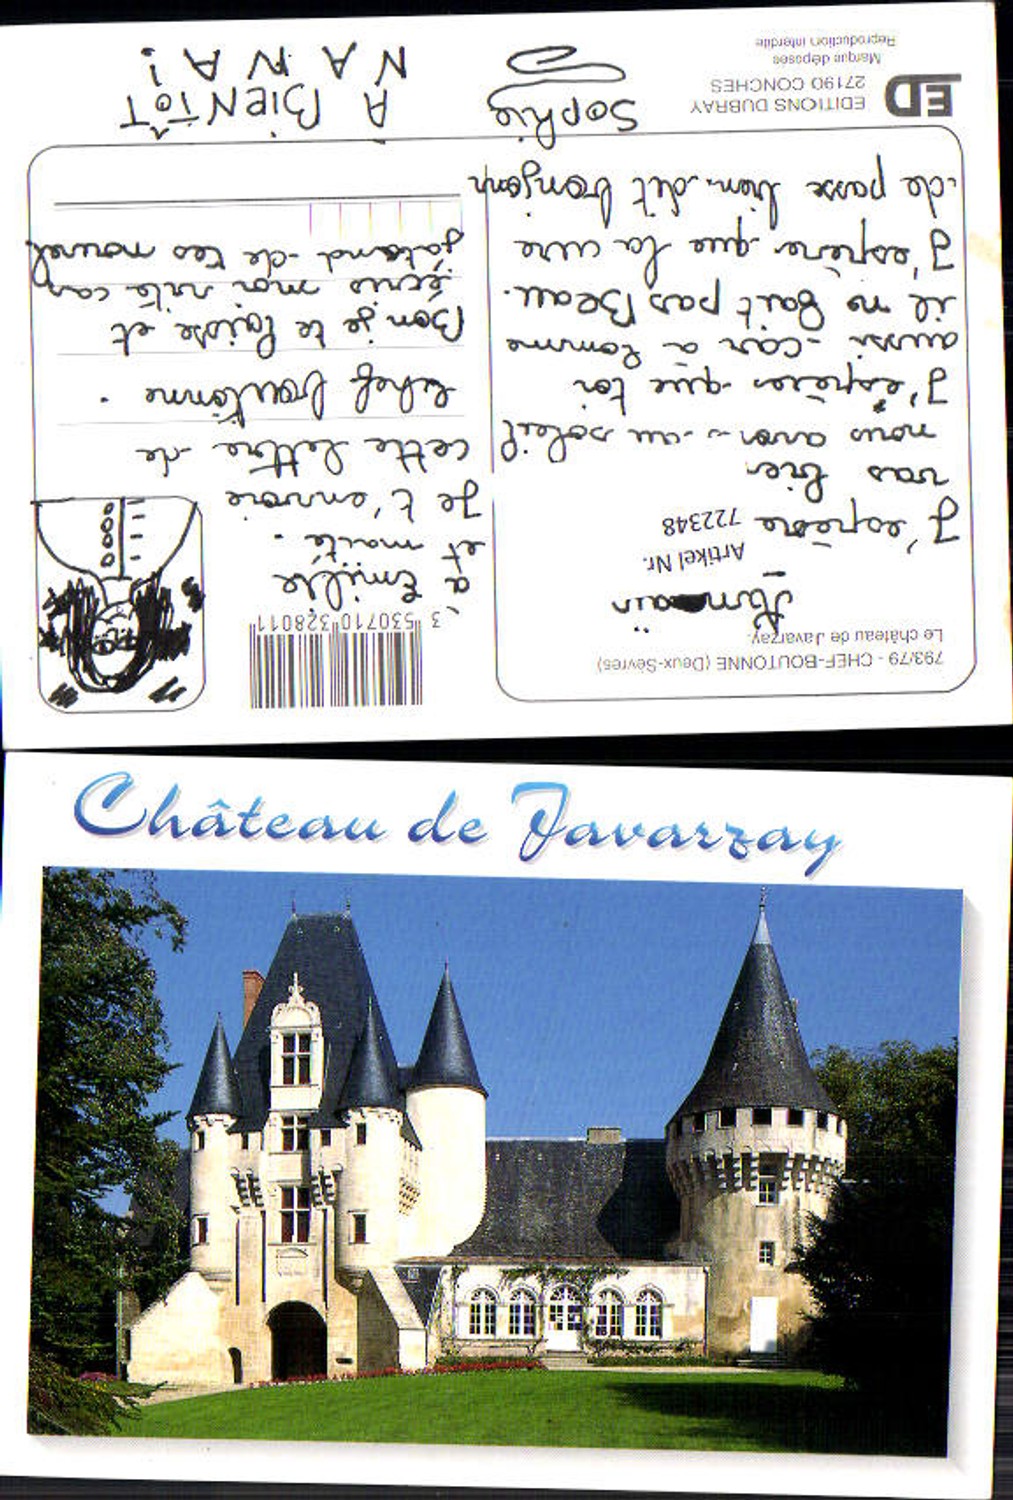 793/79 - CHEF-BOUTONNE (Deux-Sèvres)
Le château de Javarzay.
Artikel Nr.
722348
J'espère
vas bien
nous avon au soleil
J'espères que toi
aussi car à Romme
il ne fait pas Beau.
J'espère que la cure
de passe bien. dit bonjour
3 530710 328011
a Emilie
et maité.
Je t'envoie
cette lettre de
chef boutonne.
Bon je te laisse et
écris moi vite car
j'atend de tes nouvel
Sophie
A BIENTÔT
NANA!
ED
EDITIONS DUBRAY
27190 CONCHES
Marque déposée
Reproduction interdite
Château de Javarzay